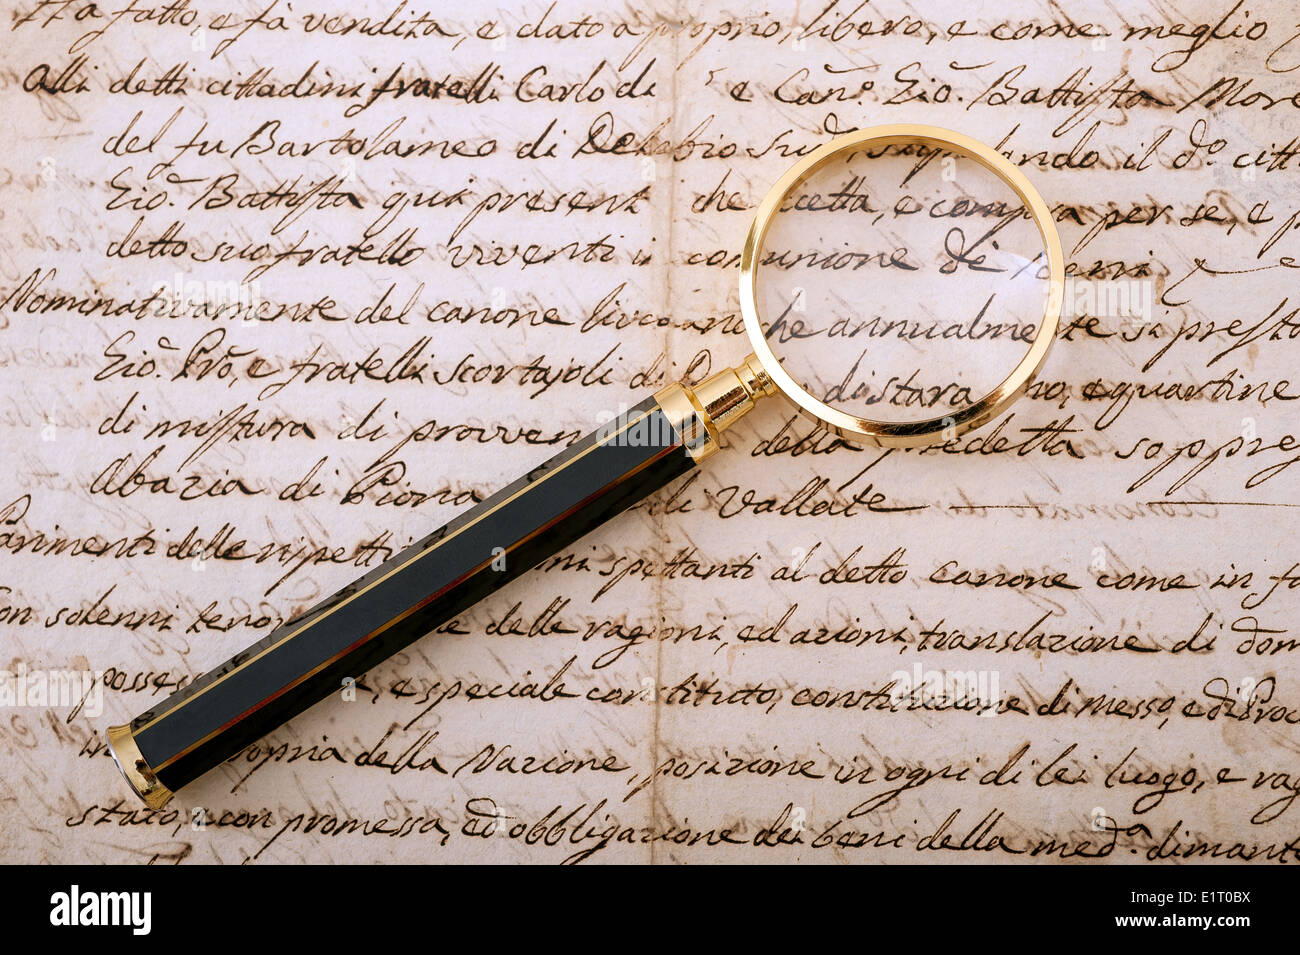 Ha fatto, e fà vendita, e dato a proprio, libero, e come meglio
alli detti cittadini fratelli Carlo di e Canº. Gio. Battista More
del fu Bartolameo di sudº, il dº. citt
Gio. Battista qui present che cetta, e compra per se, e p
detto suo fratello viventi in comunione di beni
Nominativamente del canone livellar che annualmente si presta
Gio. Prõ, e fratelli scortajoli di distara no, e quartine
di mistura di provven della predetta soppres
Abazia di Piona di Vallate
Parimenti delle rispetti spettanti al detto canone come in fa
Con solenni tenor e delle ragioni, ed azioni, translazione di dom
possess e speciale constituto, constituzione di messo, e di Proc
in propria della Nazione, posizione in ogni di lei luogo, e rag
stato, e con promessa, ed obbligazione dei beni della medª. dimant
alamy
Image ID: E1T0BX
www.alamy.com